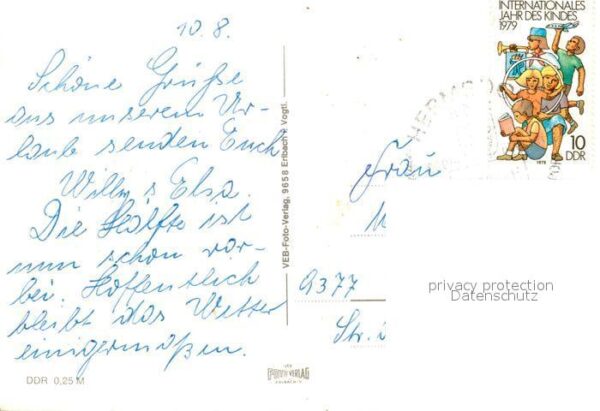 10.8.
Schöne Grüße
aus unserem Ur-
laube senden Euch
Willy & Elsa.
Die Hälfte ist
nun schon vor-
bei. Hoffentlich
bleibt das Wetter
einigermaßen.
DDR 0,25 M
VEB-Foto-Verlag, 9658 Erlbach i. Vogtl.
VEB
FOTO-VERLAG
ERLBACH V.
INTERNATIONALES
JAHR DES KINDES
1979
10
DDR
1979
HERMS
Frau
M
9377
Str.
privacy protection
Datenschutz